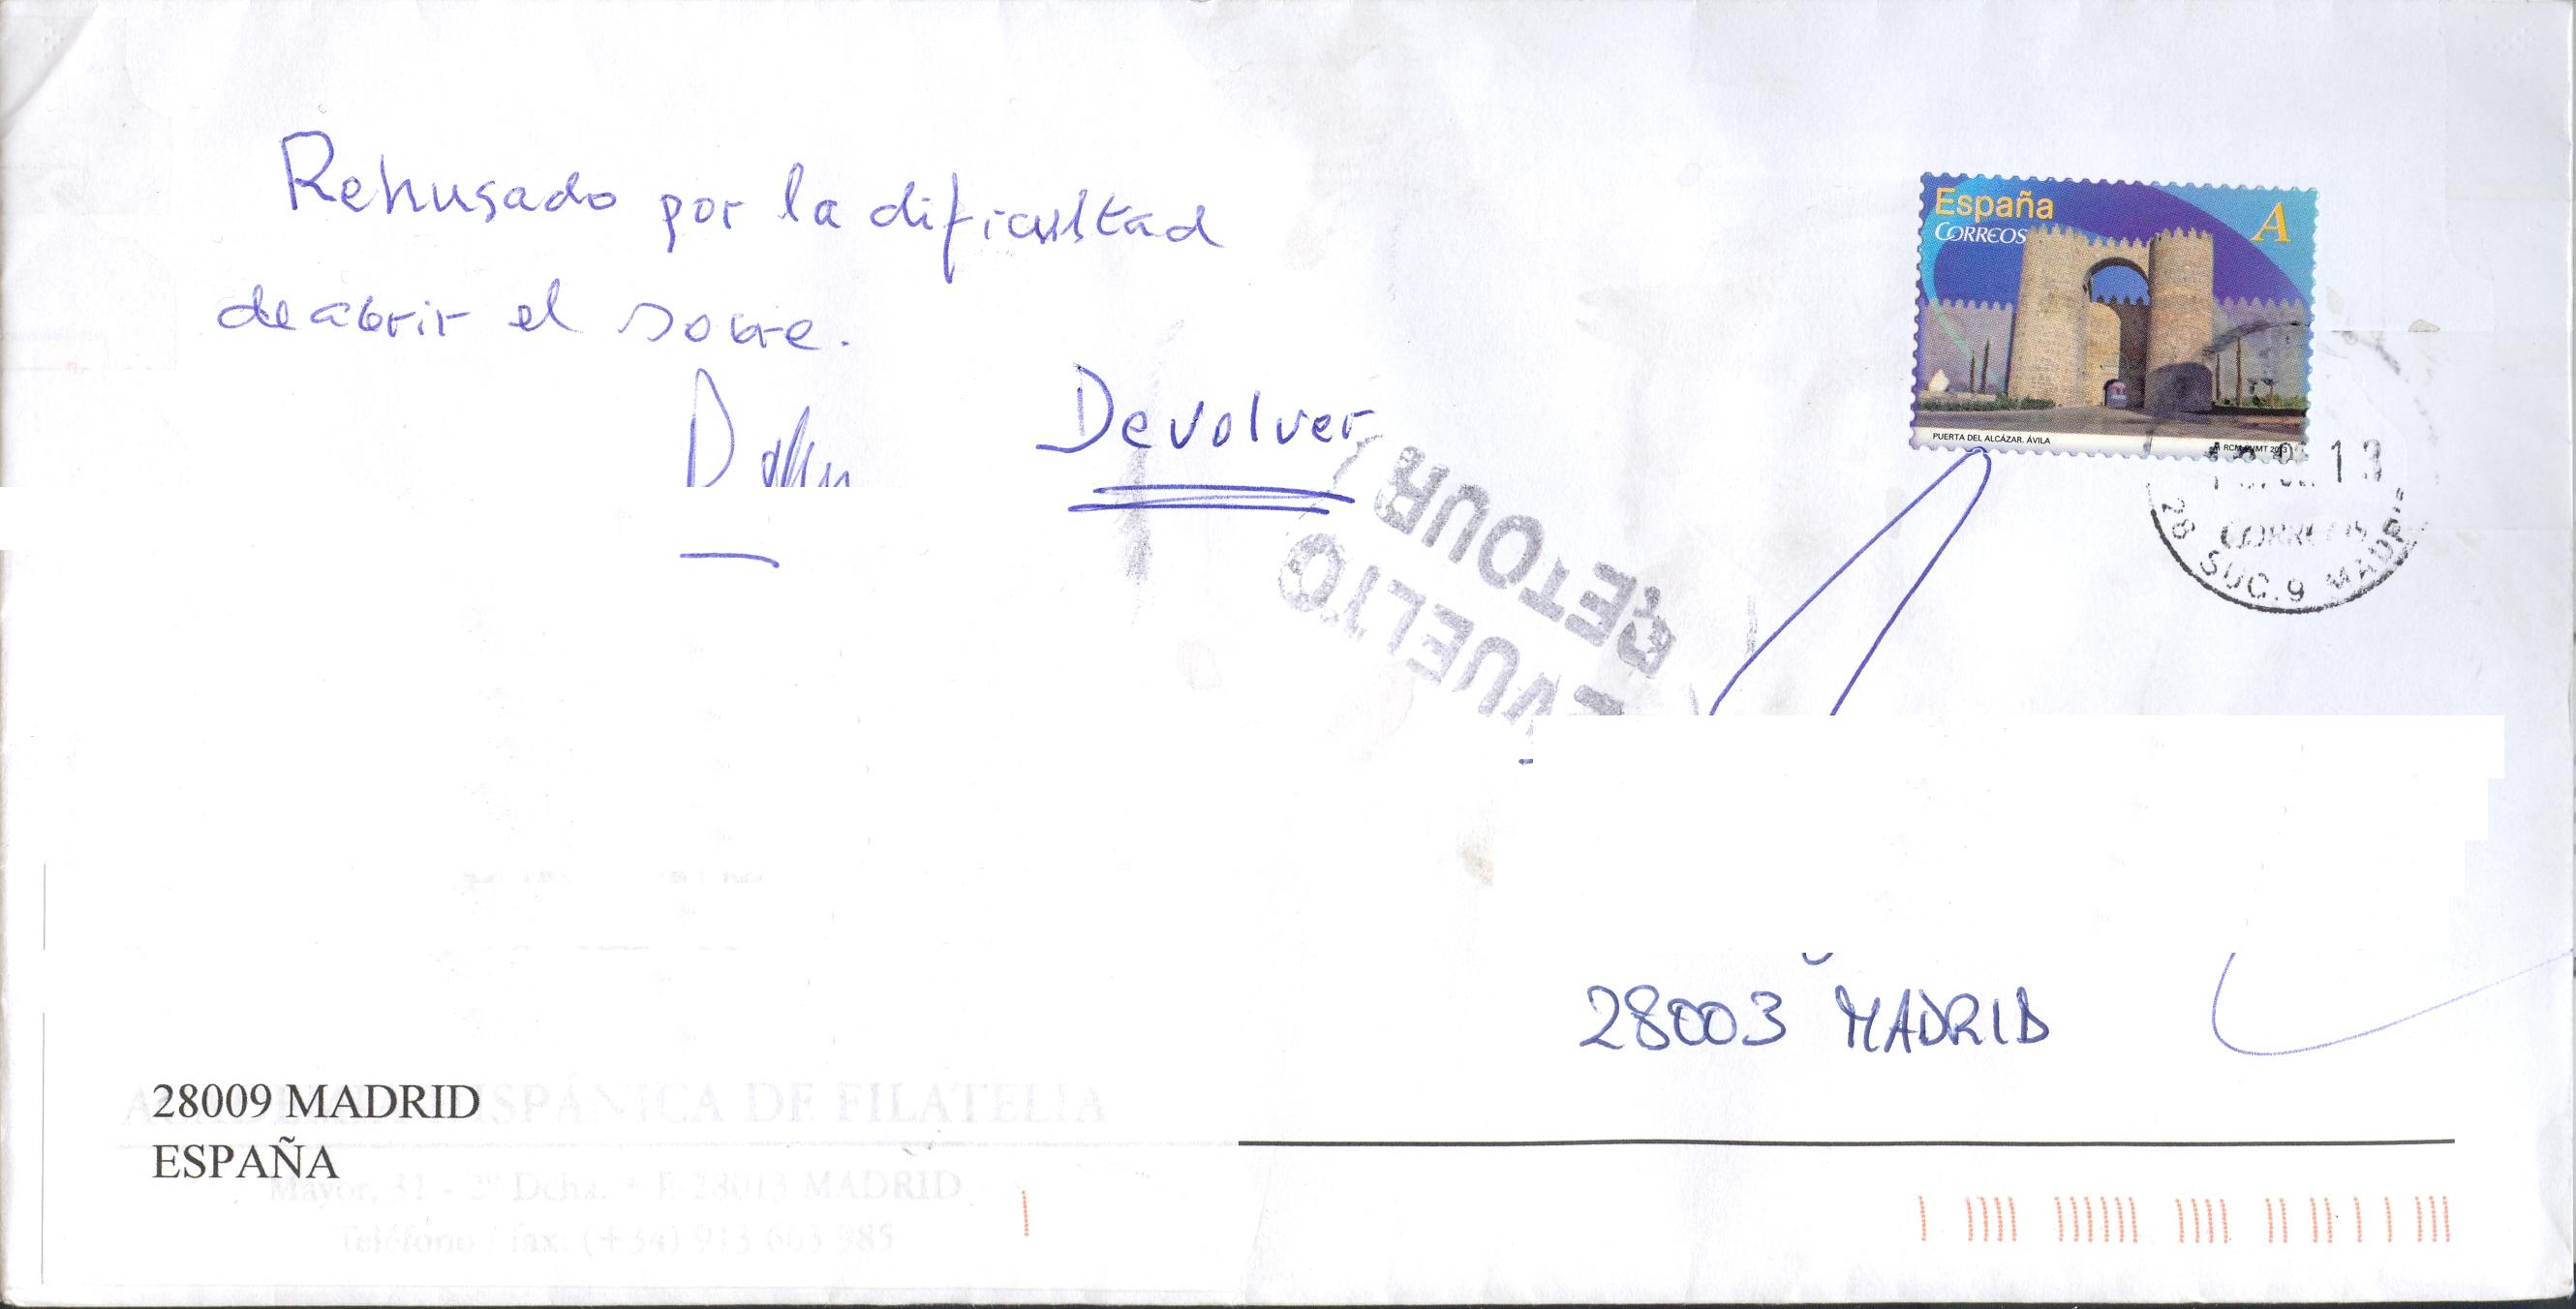 Rehusado por la dificultad
de abrir el sobre.
Devolver
España
CORREOS
A
PUERTA DEL ALCÁZAR. ÁVILA
RCM-FNMT 2013
13
CORREOS
28 SUC. 9 MADR
RETOUR
EVUELTO
28003 MADRID
28009 MADRID
ESPAÑA
HISPÁNICA DE FILATELIA
Mayor, 31 - 2º Dcha. * E-28013 MADRID
Teléfono / fax: (+34) 913 663 985